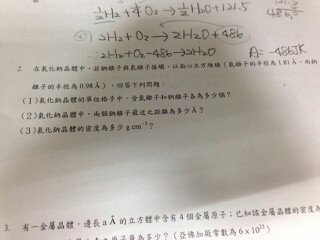 ½H₂ + ¼O₂ → ½H₂O + 121.5
2H₂ + O₂ → 2H₂O + 486
2H₂ + O₂ - 486 → 2H₂O
A = -486 kJ
2. 在氯化鈉晶體中,若鈉離子與氯離子接觸,以面心立方堆積(氯離子的半徑為1.81Å,而鈉
離子的半徑為0.98Å),回答下列問題:
(1)氯化鈉晶體的單位格子中,含氯離子和鈉離子各為多少個?
(2)氯化鈉晶體中,兩個鈉離子最近之距離為多少Å?
(3)氯化鈉晶體的密度為多少g cm⁻³?
3. 有一金屬晶體,邊長a Å的立方體中含有4個金屬原子;已知該金屬晶體的密度為
原子量為多少?(亞佛加厥常數為6×10²³)